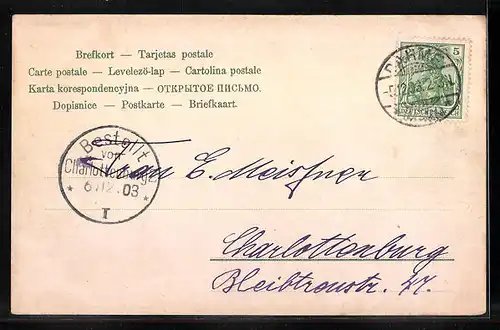 Brefkort — Tarjetas postale
Carte postale — Levelező-lap — Cartolina postale
Karta korespondencyjna — ОТКРЫТОЕ ПИСЬМО.
Dopisnice — Postkarte — Briefkaart.
DAHME
5
Bestellt
von
Charlottenburg
6/12.03
I
Frau E. Meissner
Charlottenburg
Bleibtreustr. 47.